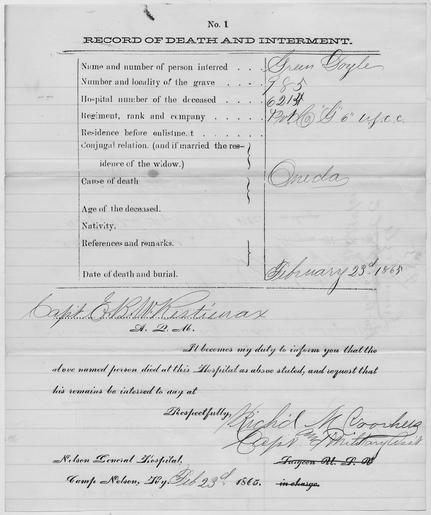 No. 1
RECORD OF DEATH AND INTERMENT.
Name and number of person interred . . . Green Goyle
Number and locality of the grave . . . . 985
Hospital number of the deceased . . . . 6214
Regiment, rank and company . . . . . Pvt "C" 6"
Residence before enlistment . . . . .
Conjugal relation. (and if married the res-
idence of the widow.)
Cause of death Oneda
Age of the deceased.
Nativity.
References and remarks.
Date of death and burial. February 23d 1865
Capt E. B. W.
A. Q. M.
It becomes my duty to inform you that the
above named person died at this Hospital as above stated, and request that
his remains be interred to day at
Respectfully,
Capt
Nelson General Hospital, Surgeon U. S. V.
Camp Nelson, Ky. Feb 23d 1865. in charge.